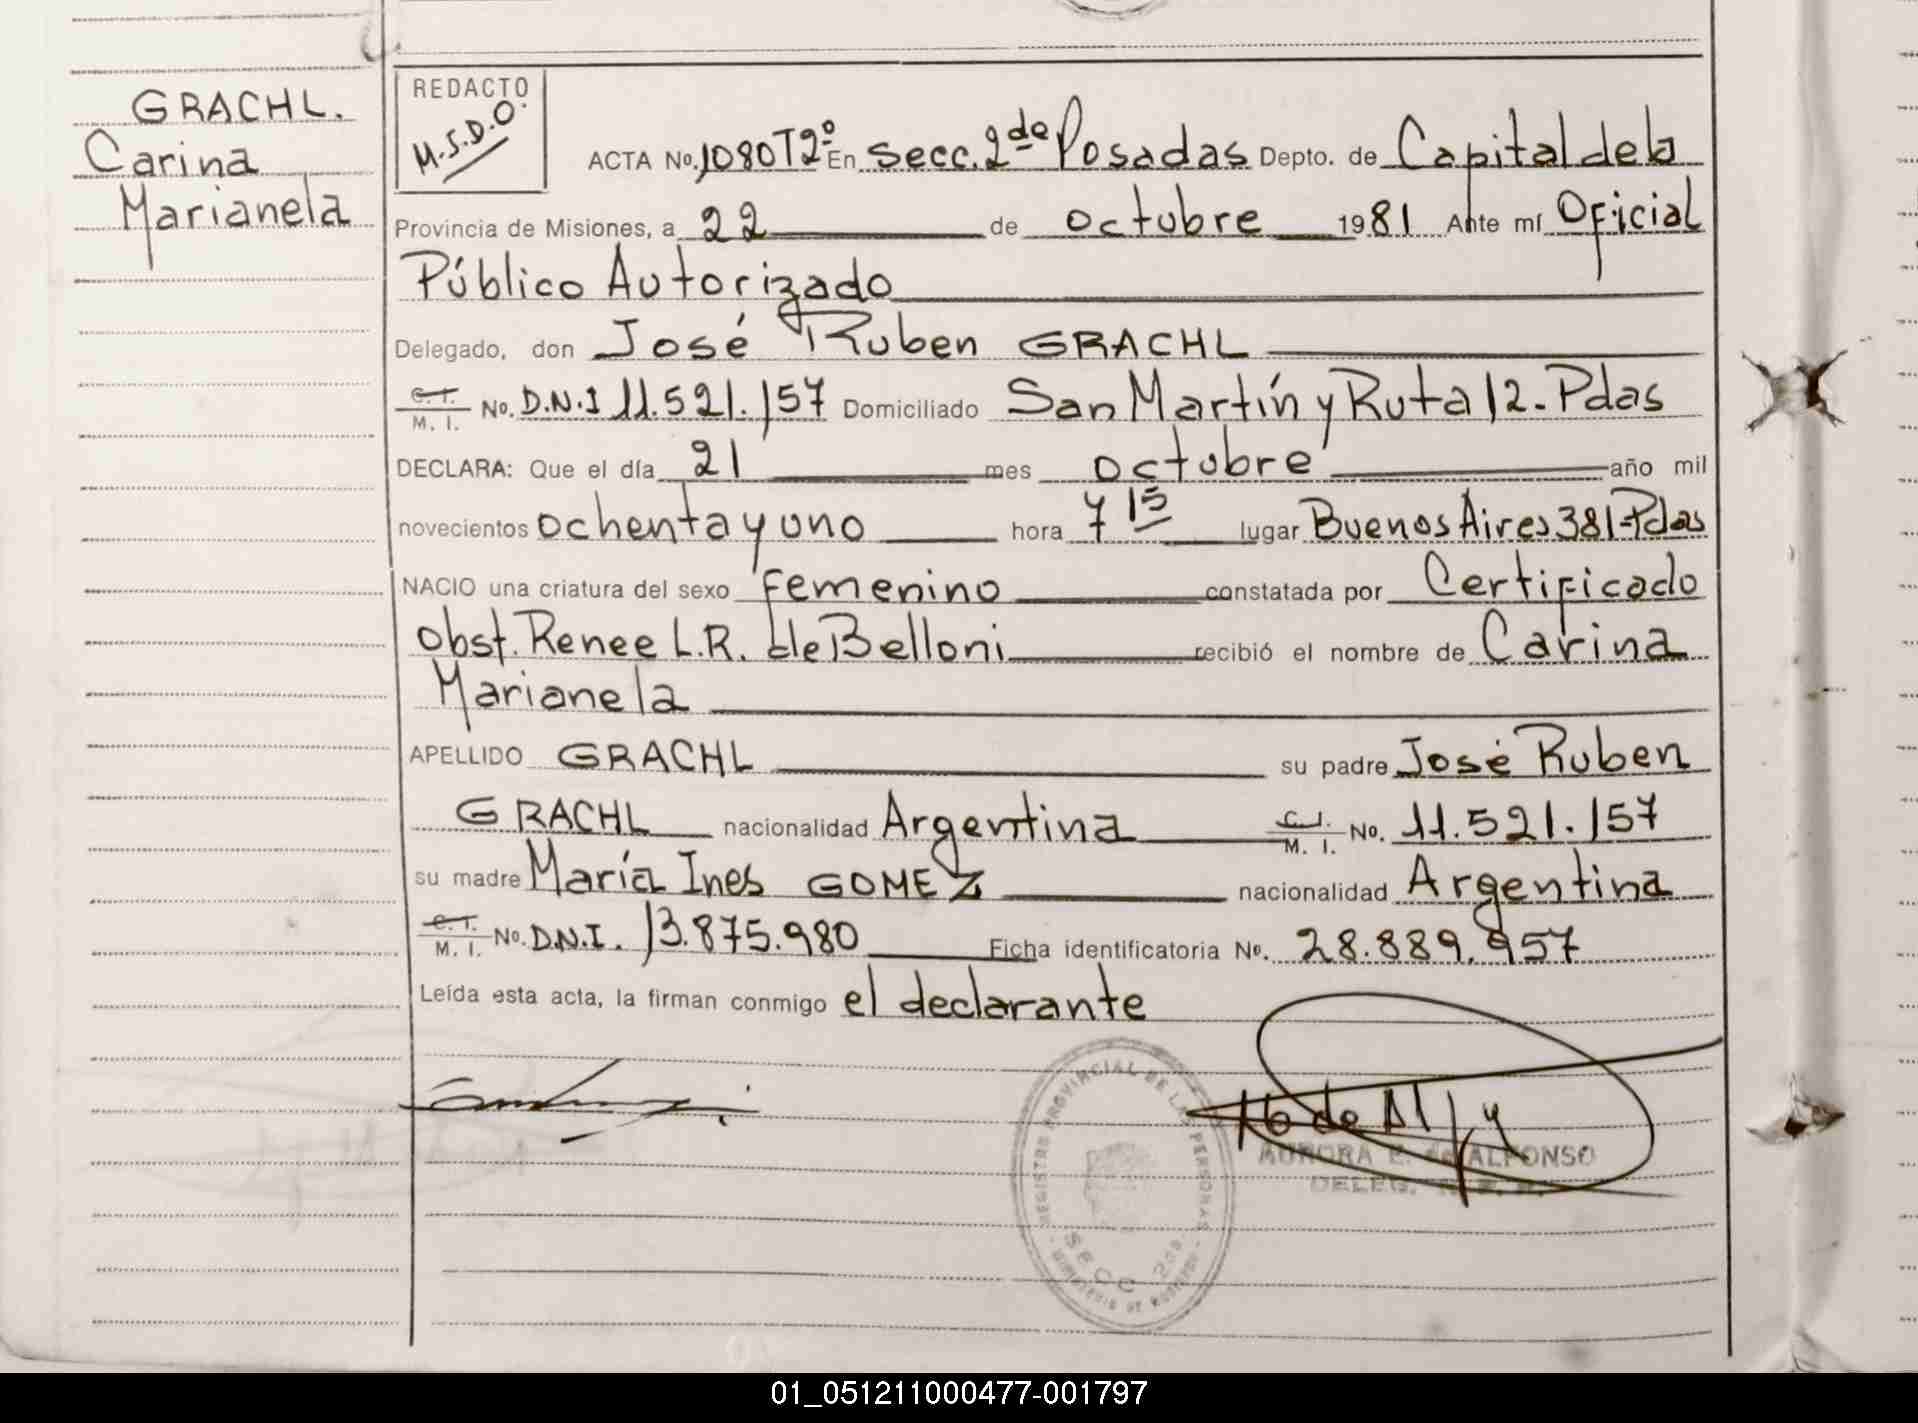 GRACHL.
Carina
Marianela
REDACTO
M.S.D.O.
ACTA No. 1080 T2º En secc. 2da Posadas Depto. de Capital de la
Provincia de Misiones, a 22 de octubre 1981 Ante mí Oficial
Público Autorizado
Delegado, don José Ruben GRACHL
C.I. M. I. No. D.N.I 11.521.157 Domiciliado San Martín y Ruta 12-Pdas
DECLARA: Que el día 21 mes octubre año mil
novecientos ochenta y uno hora 7 15 lugar Buenos Aires 381-Pdas
NACIO una criatura del sexo femenino constatada por Certificado
obst. Renee L.R. de Belloni recibió el nombre de Carina
Marianela
APELLIDO GRACHL su padre José Ruben
GRACHL nacionalidad Argentina C.I. M. I. No. 11.521.157
su madre María Ines GOMEZ nacionalidad Argentina
C.I. M. I. No. D.N.I. 13.875.980 Ficha identificatoria No. 28.889.957
Leída esta acta, la firman conmigo el declarante
REGISTRO PROVINCIAL DE LAS PERSONAS
SECC 2da
AURORA E. de ALFONSO
DELEG.
01_051211000477-001797